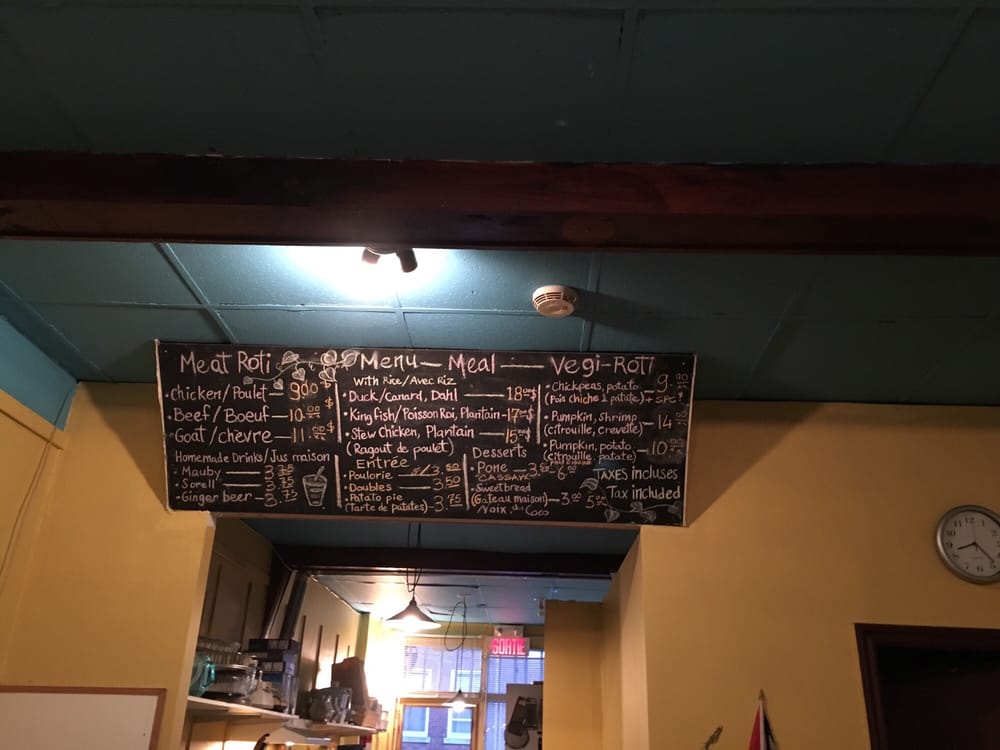 Meat Roti
Chicken/Poulet — 9.00 $
Beef/Boeuf — 10.00 $
Goat/chevre — 11.00 $
Homemade Drinks/Jus maison
Mauby — 3.75
Sorell — 3.75
Ginger beer — 3.75
Menu — Meal
With Rice/Avec Riz
Duck/Canard, Dahl — 18.00$
King fish/Poisson Roi, Plantain — 17.00$
Stew Chicken, Plantain — 15.00$
(Ragout de poulet)
Entrée
Poulorie 3.50
Doubles — 3.50
Potato pie
(Tarte de patates) — 3.75
Desserts
Pone — 3.50
CASSAVE
Sweetbread
(Gâteau maison) — 3.00
Noix de Coco
Vegi-Roti
Chickpeas, potato 9.
(Pois chiche & patate)
Pumpkin, shrimp
(citrouille, crevette) — 14
Pumpkin, potato
(citrouille, patate) — 10
TAXES incluses
Tax included
SORTIE